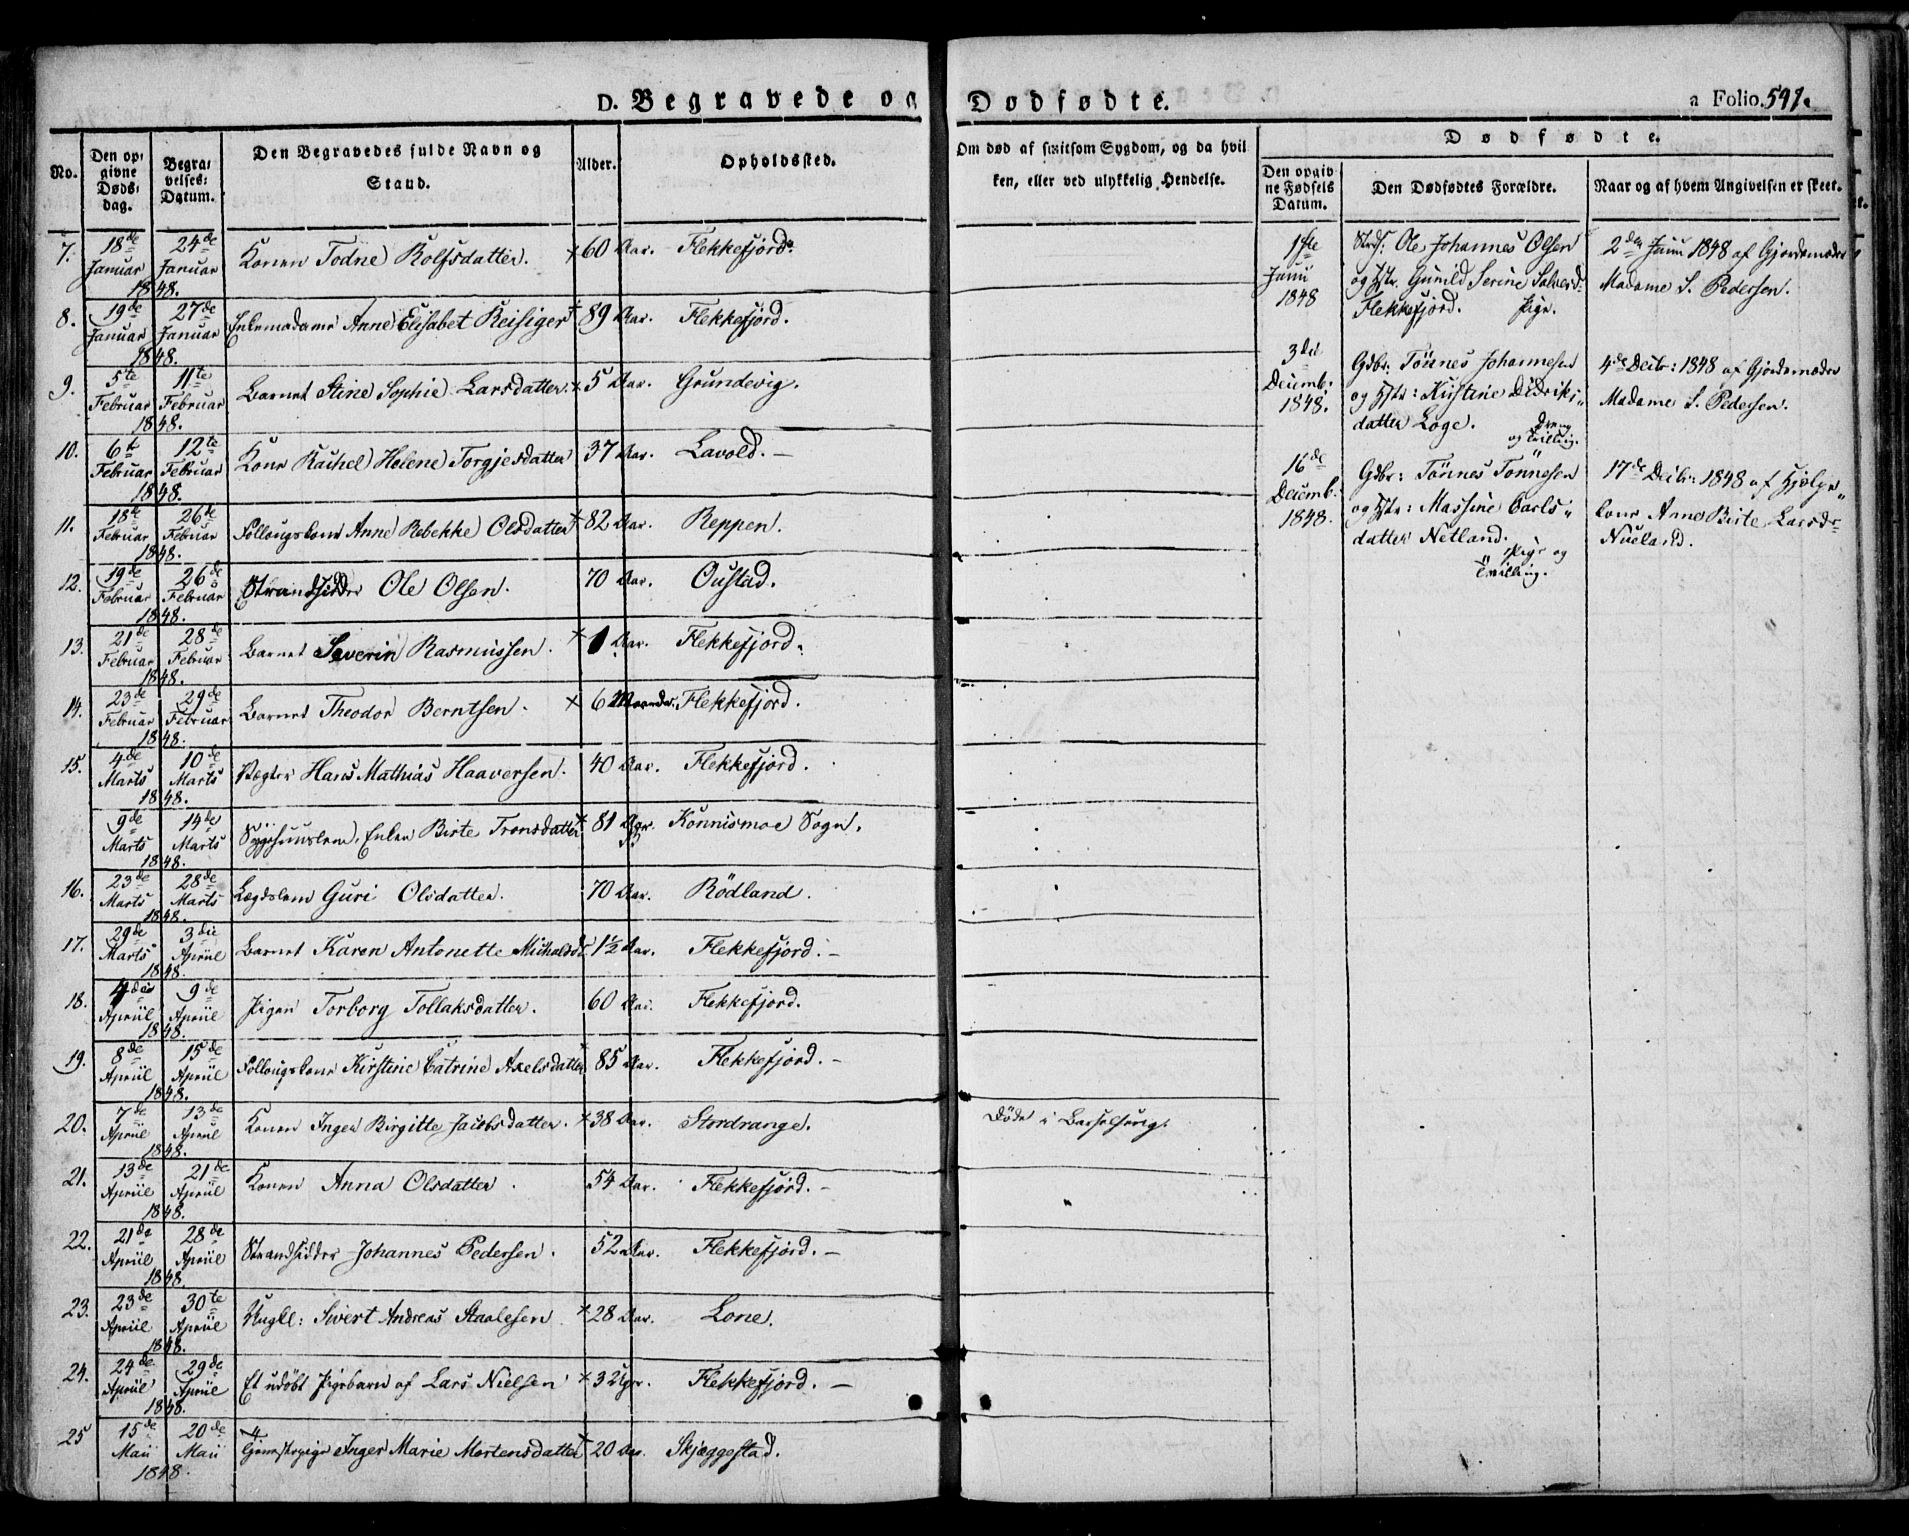 D. Begravede og Dødfødte.
a Folio. 591.
No.
Den opgivne Dødsdag.
Begravelses Datum.
Den Begravedes fulde Navn og Stand.
Alder.
Opholdssted.
Om død af smitsom Sygdom, og da hvilken, eller ved ulykkelig Hendelse.
Dødfødte.
Den opgivne Fødsels Datum.
Den Dødfødtes Forældre.
Naar og af hvem Angivelsen er skeet.
7. 18de Januar 24de Januar 1848. Konen Todne Rolfsdatter. 60 Aar. Flekkefjord.
8. 19de Januar 27de Januar 1848. Enkemadame Anne Elisabet Reisiger 89 Aar. Flekkefjord.
9. 5te Februar 11te Februar 1848. Barnet Stine Sophie Larsdatter 5 Aar. Grundevig.
10. 6te Februar 12te Februar 1848. Kone Rachel Helene Torgjesdatter 37 Aar. Lavold. –
11. 18de Februar 26de Februar 1848. Follougskone Anne Rebekke Olsdatter 82 Aar. Reppen.
12. 19de Februar 26de Februar 1848. Strandsidder Ole Olsen. 70 Aar. Oustad.
13. 21de Februar 28de Februar 1848. Barnet Severin Rasmussen. 1 Aar. Flekkefjord.
14. 23de Februar 29de Februar 1848. Barnet Theodor Berntsen. 6 Maander. Flekkefjord.
15. 4de Marts 10de Marts 1848. Vægter Hans Mathias Haaversen. 40 Aar. Flekkefjord.
9de Marts 14de Marts 1848. Enken Birte Tronsdatter 81 Aar. Konnismoe Sogn.
16. 23de Marts 28de Marts 1848. Lægdslem Guri Olsdatter. 70 Aar. Rödland.
17. 29de Marts 3die April 1848. Barnet Karen Antonette Michalsdr. 1½ Aar. Flekkefjord. –
18. 4de April 9de April 1848. Pigen Torborg Tollaksdatter. 60 Aar. Flekkefjord.
19. 8de April 15de April 1848. Follougskone Kirstine Catrine Axelsdatter 85 Aar. Flekkefjord. –
20. 7de April 13de April 1848. Konen Inger Birgitte Jacobsdatter. 38 Aar. Stordrange. Døde i Barselseng.
21. 13de April 21de April 1848. Konen Anna Olsdatter. 54 Aar. Flekkefjord. –
22. 21de April 28de April 1848. Strandsidder Johannes Pedersen. 52 Aar. Flekkefjord. –
23. 23de April 30te April 1848. Ungkl: Sivert Andreas Staalesen 28 Aar. Lone.
24. 24de April 29de April 1848. Et udöbt Pigebarn af Lars Nielsen 3 Uger. Flekkefjord. –
25 15de Maii 20de Maii 1848. Inger Marie Mortensdatter 20 Aar. Skjæggestad.
1ste Juni 1848
Strds: Ole Johannes Olsen
og Hstr. Gunild Serine Salvesd.
Flekkefjord. Pige.
2den Juni 1848 af Gjordemoder
Madame S. Pedersen.
3die Decemb: 1848.
Gdbr: Tönnes Johannesen
og Hstr: Kirstine Didriks-
datter Loge. Dreng
og Tvilling.
4de Decbr: 1848 af Gjordemoder
Madame S. Pedersen.
16de Decemb. 1848.
Gdbr: Tönnes Tönnesen
og Hstr: Massine Carls-
datter Netland.
Pige og
Tvilling.
17de Decbr: 1848 af Hjælpe-
kone Anne Birte Larsdr.
Nueland.